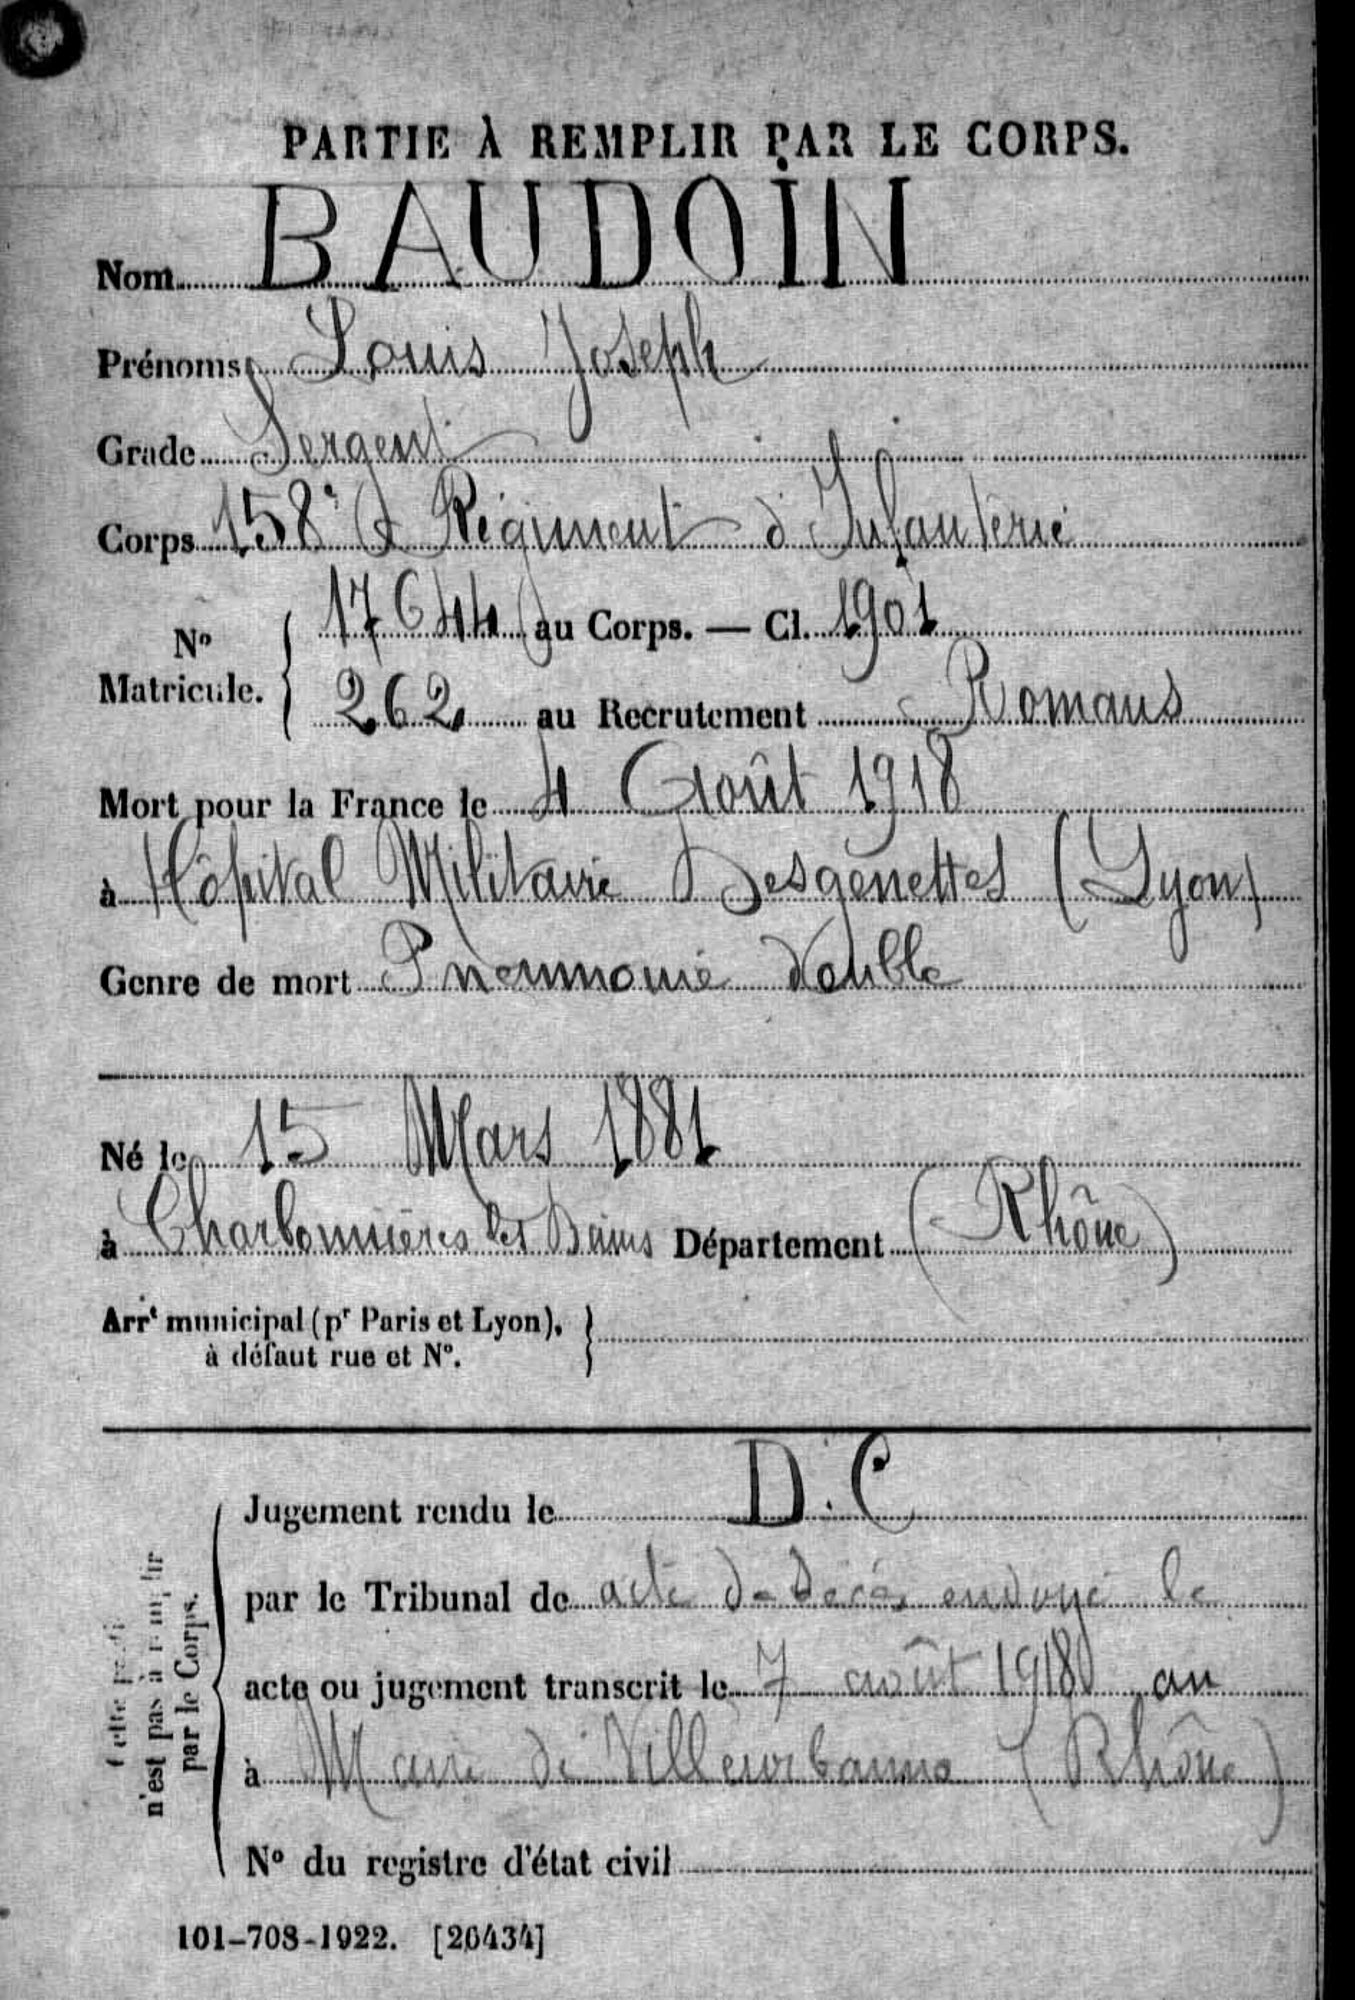 PARTIE À REMPLIR PAR LE CORPS.
Nom BAUDOIN
Prénoms Louis Joseph
Grade Sergent
Corps 158e Régiment d'Infanterie
No Matricule. 17644 au Corps. — Cl. 1901
262 au Recrutement Romans
Mort pour la France le 4 Août 1918
à Hôpital Militaire Desgenettes (Lyon)
Genre de mort Pneumonie double
Né le 15 Mars 1881
à Charbonnières les Bains Département (Rhône)
Arrt municipal (pr Paris et Lyon),
à défaut rue et No.
Cette partie
n'est pas à remplir
par le Corps.
Jugement rendu le D.C
par le Tribunal de acte de décès envoyé le
acte ou jugement transcrit le 7 août 1918 au
à Maire de Villeurbanne (Rhône)
No du registre d'état civil
101-708-1922. [26434]